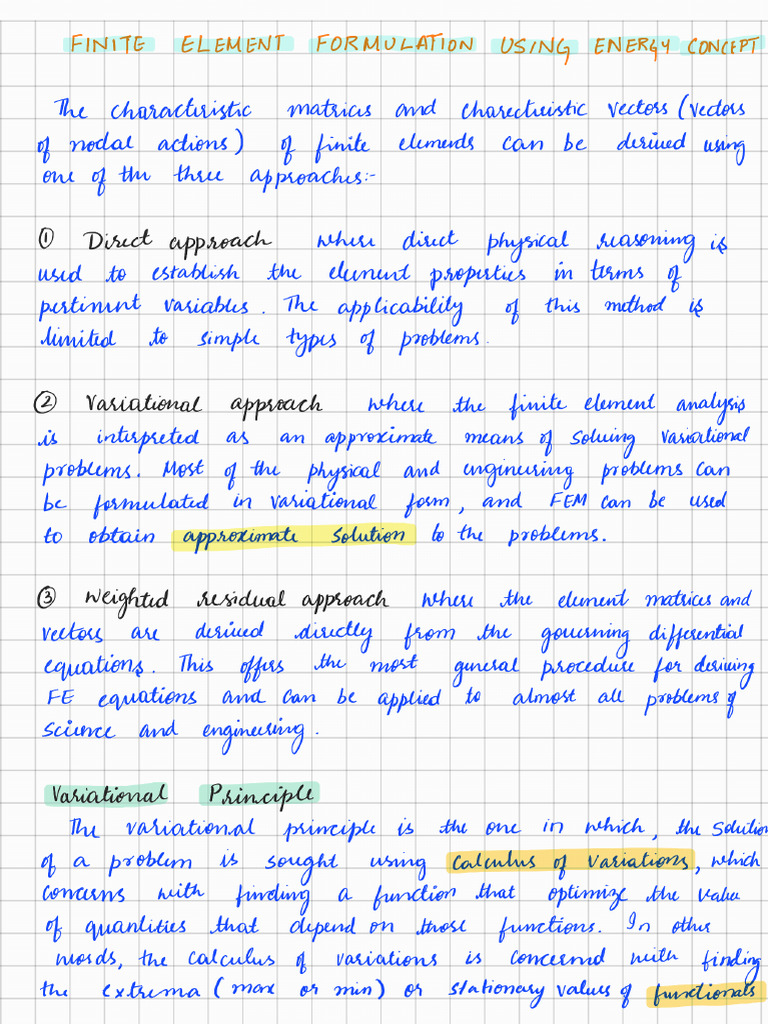 FINITE ELEMENT FORMULATION USING ENERGY CONCEPT
The characteristic matrices and charecteristic vectors (vectors
of nodal actions) of finite elements can be derived using
one of the three approaches:-
① Direct approach where direct physical reasoning is
used to establish the element properties in terms of
pertinent variables. The applicability of this method is
limited to simple types of problems.
② Variational approach where the finite element analysis
is interpreted as an approximate means of solving variational
problems. Most of the physical and engineering problems can
be formulated in variational form, and FEM can be used
to obtain approximate solution to the problems.
③ Weighted residual approach where the element matrices and
vectors are derived directly from the governing differential
equations. This offers the most general procedure for deriving
FE equations and can be applied to almost all problems of
science and engineering.
Variational Principle
The variational principle is the one in which, the solution
of a problem is sought using calculus of variations, which
concerns with finding a function that optimize the value
of quantities that depend on those functions. In other
words, the calculus of variations is concerned with finding
the extrema (max or min) or stationary values of functionals